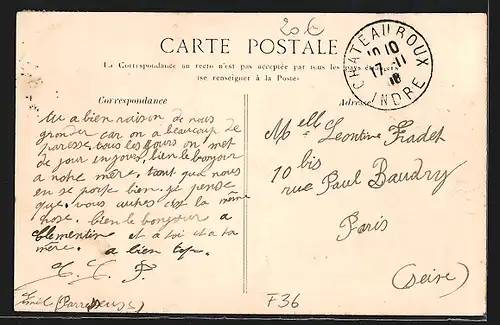 20 €
CARTE POSTALE
La Correspondance au recto n'est pas acceptée par tous les pays étrangers
(se renseigner à la Poste)
CHATEAUROUX
10 10
17 - 11
INDRE
Correspondance
Adresse
tu a bien raison de nous
gronder car on a beaucoup de
paresse. tous les jours on met
de jour en jour, bien le bonjour
a notre mère. tant que nous
en se porte bien. je pense
que vous autres c'est la même
chose. bien le bonjour a
Clementine et a toi et a ta
mère. a bien
Melle Leontine Fradet
10 bis
rue Paul Baudry
Paris
(Seine)
F36